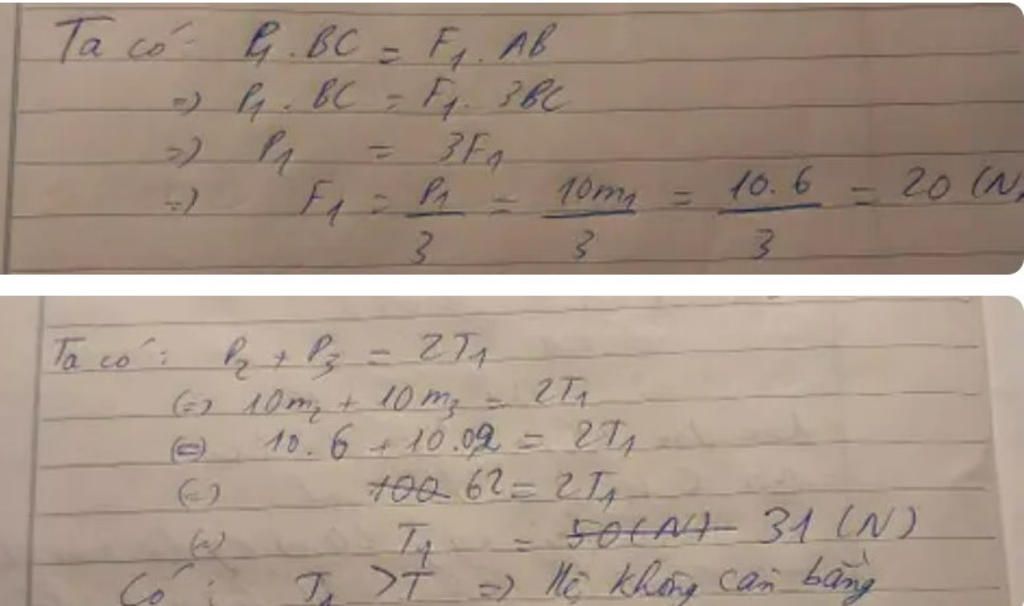 Ta có: P₁ . BC = F₁ . AB
=> P₁ . BC = F₁ . 3BC
=> P₁ = 3F₁
=> F₁ = P₁/3 = 10m₁/3 = 10.6/3 = 20 (N)
Ta có: P₂ + P₃ = 2T₁
(=) 10m₂ + 10m₃ = 2T₁
(=) 10.6 + 10.0,2 = 2T₁
(=) ~~100~~ 62 = 2T₁
(=) T₁ = ~~50(N)~~ 31 (N)
Có: T₁ > T => Hệ không cân bằng